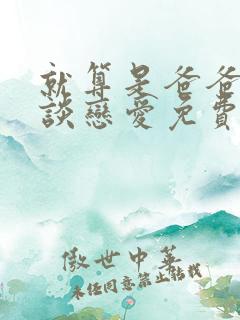 就算是爸爸
談戀愛免費
傲世中華
未經同意禁止轉載